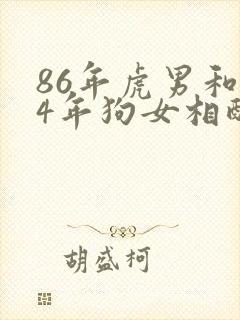 86年虎男和
4年狗女相
胡盛柯